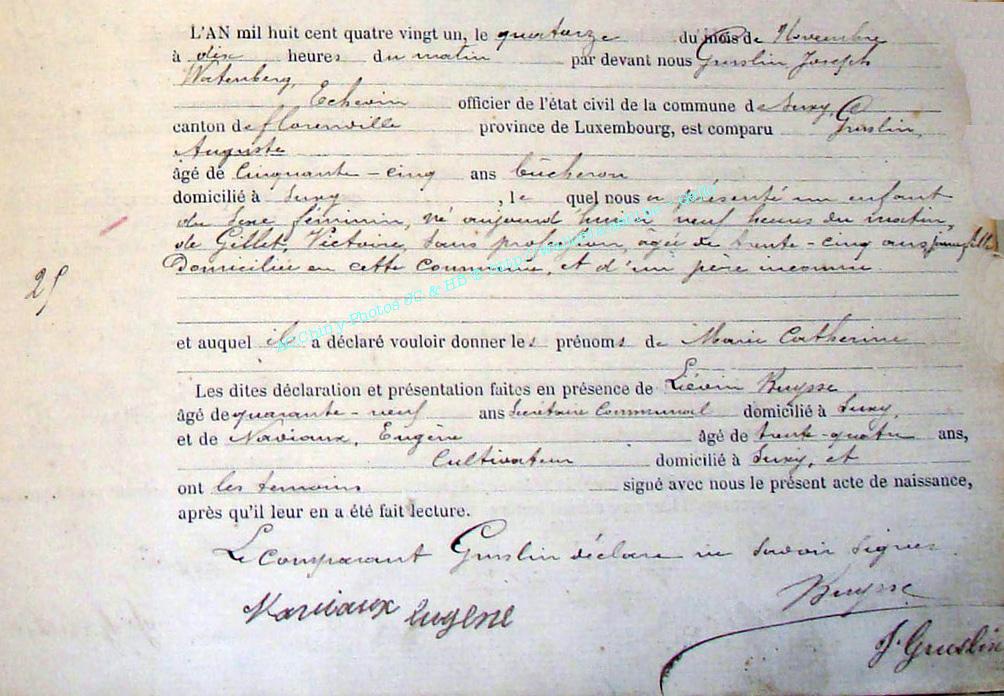 L'AN mil huit cent quatre vingt un, le quatorze du mois de Novembre
à dix heures du matin par devant nous Gruslin Joseph
Watenberg,
Echevin officier de l'état civil de la commune de Suxy,
canton de florenville province de Luxembourg, est comparu Gruslin,
Auguste
âgé de Cinquante-cinq ans bûcheron
domicilié à Suxy, le quel nous a présenté un enfant
du Sexe féminin, né aujourd'hui à neuf heures du matin,
de Gillet, Victoire, Sans profession, âgée de trente-cinq ans, jeune fille
Domiciliée en cette Commune, et d'un père inconnu.
25
et auquel il a déclaré vouloir donner les prénoms de Marie Catherine
Les dites déclaration et présentation faites en présence de Liévin Ruysse
âgé de quarante-neuf ans Secrétaire Communal domicilié à Suxy,
et de Naviaux, Eugène âgé de trente-quatre ans,
Cultivateur domicilié à Suxy, et
ont les temoins signé avec nous le présent acte de naissance,
après qu'il leur en a été fait lecture.
Le comparant Gruslin déclare ne Savoir Signer.
Ruysse
Naviaux eugène
J. Gruslin